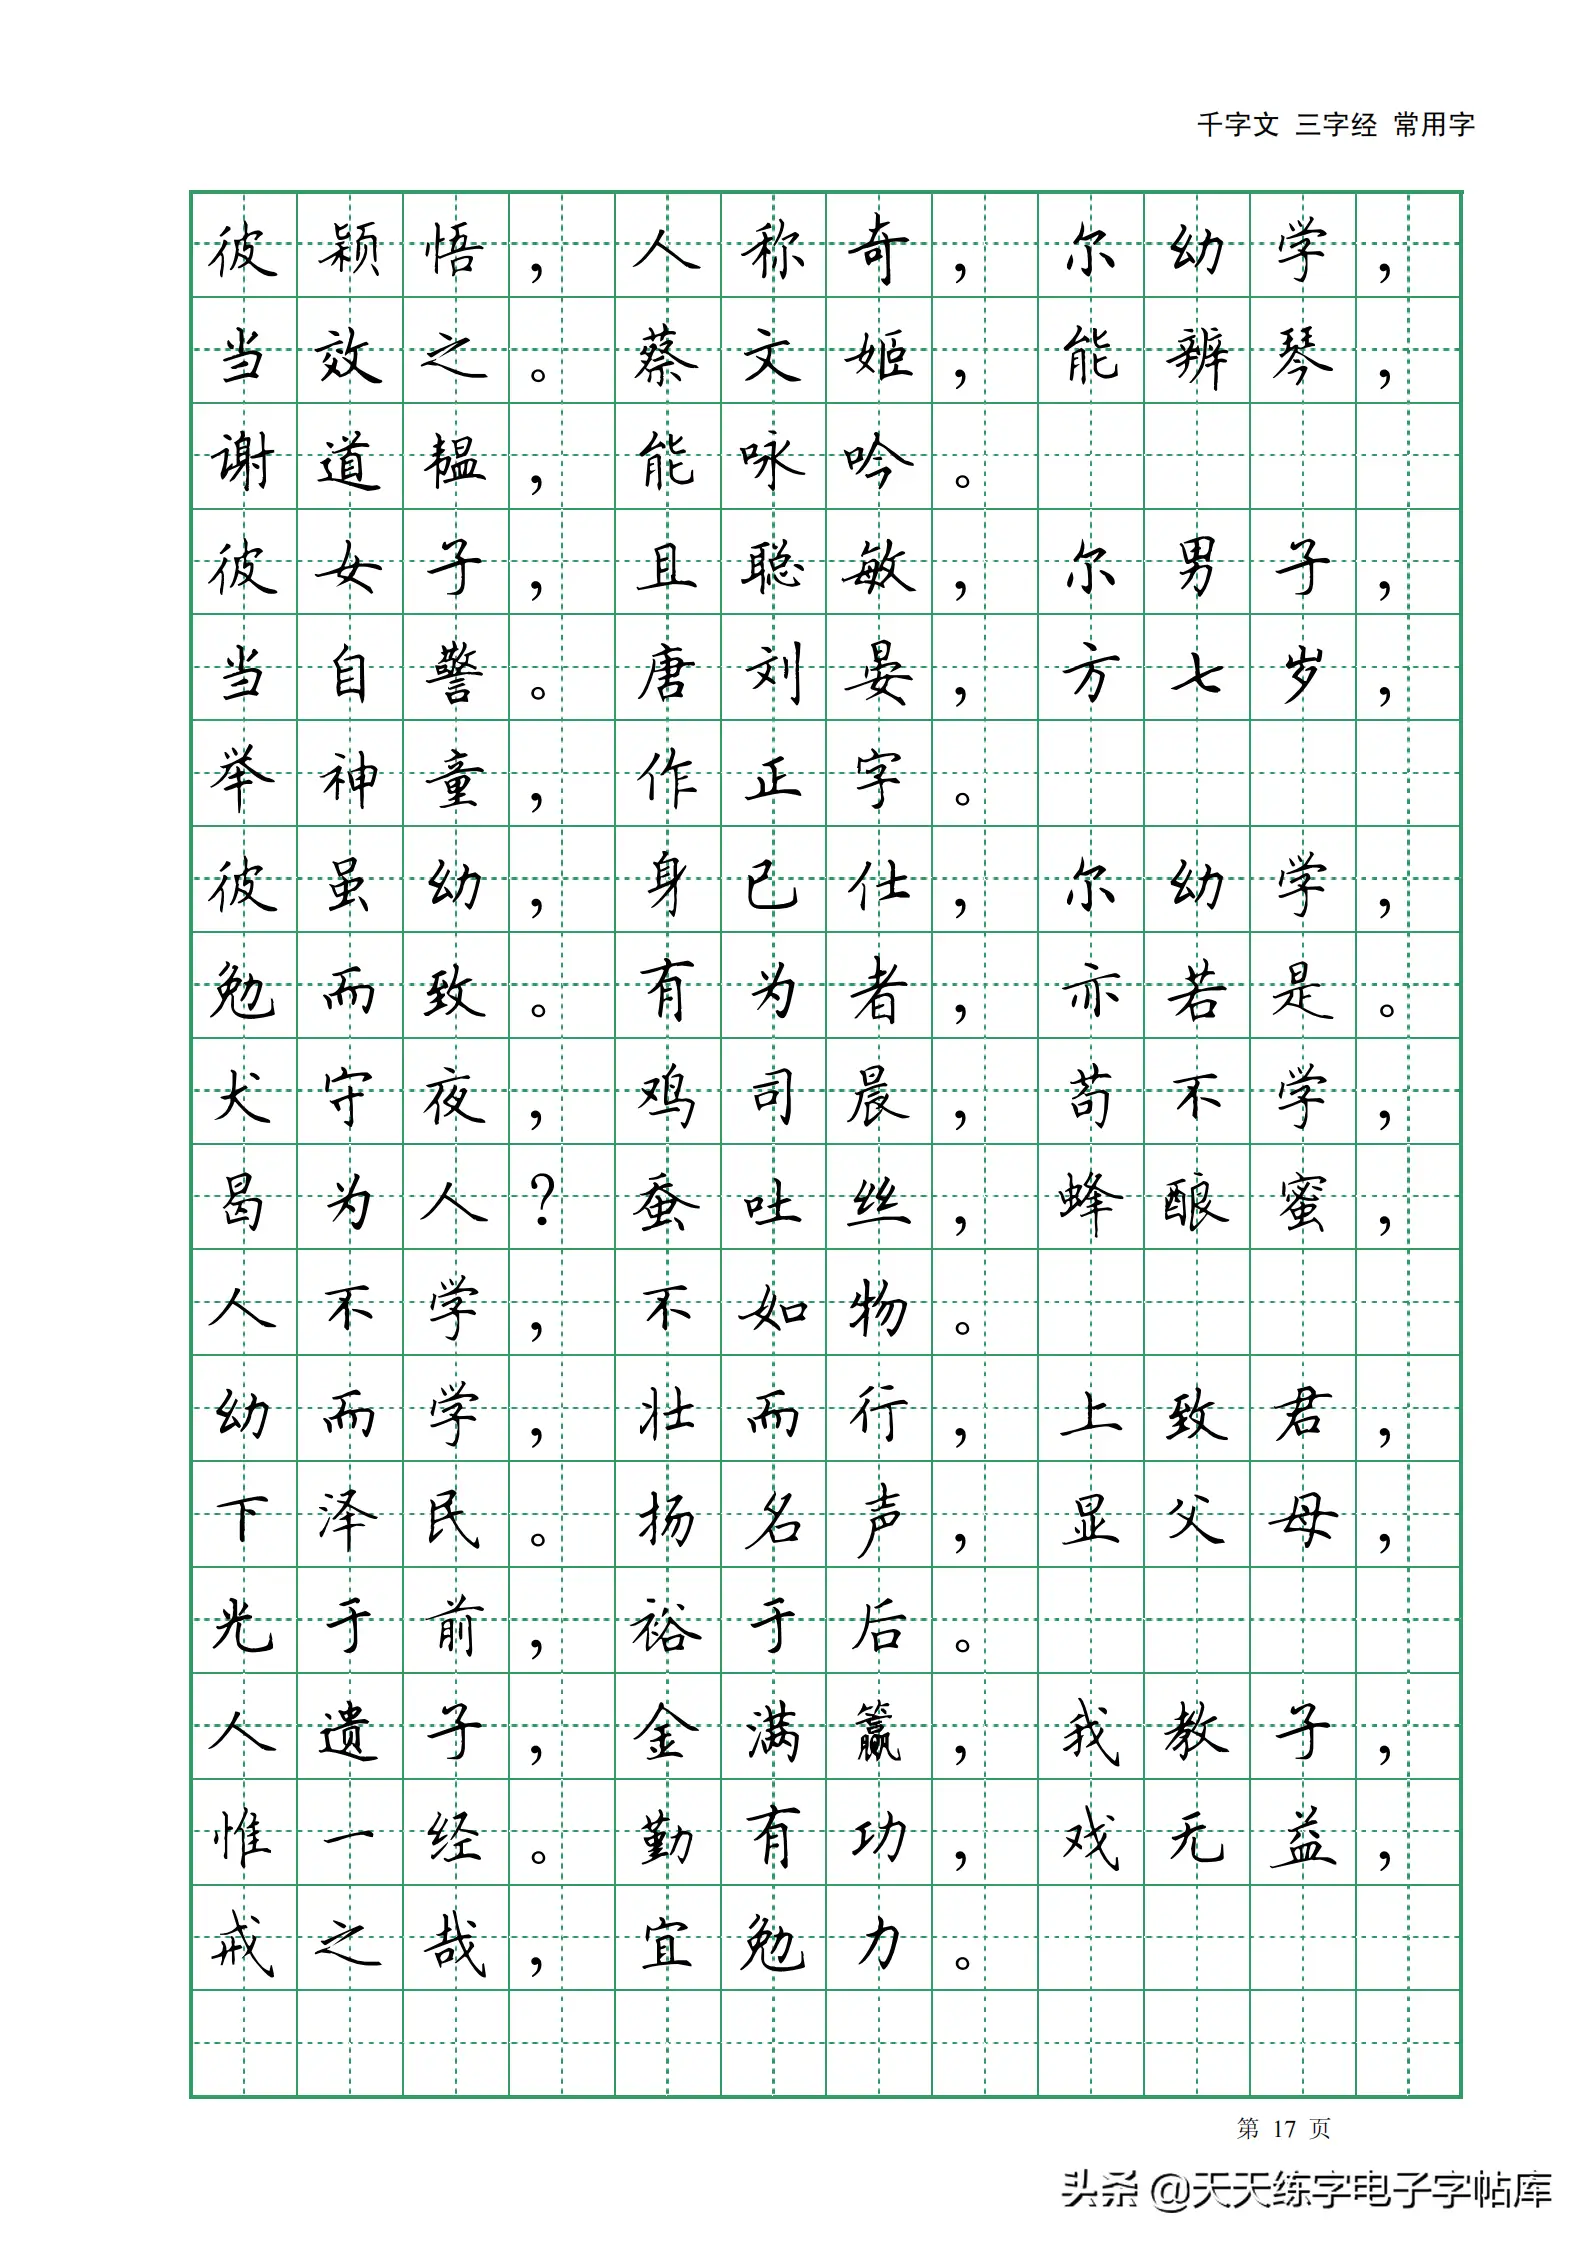 千字文 三字经 常用字
彼颖悟，人称奇，尔幼学，
当效之。蔡文姬，能辨琴，
谢道韫，能咏吟。
彼女子，且聪敏，尔男子，
当自警。唐刘晏，方七岁，
举神童，作正字。
彼虽幼，身已仕，尔幼学，
勉而致。有为者，亦若是。
犬守夜，鸡司晨，苟不学，
曷为人？蚕吐丝，蜂酿蜜，
人不学，不如物。
幼而学，壮而行，上致君，
下泽民。扬名声，显父母，
光于前，裕于后。
人遗子，金满籯，我教子，
惟一经。勤有功，戏无益，
戒之哉，宜勉力。
第 17 页
头条 @天天练字电子字帖库